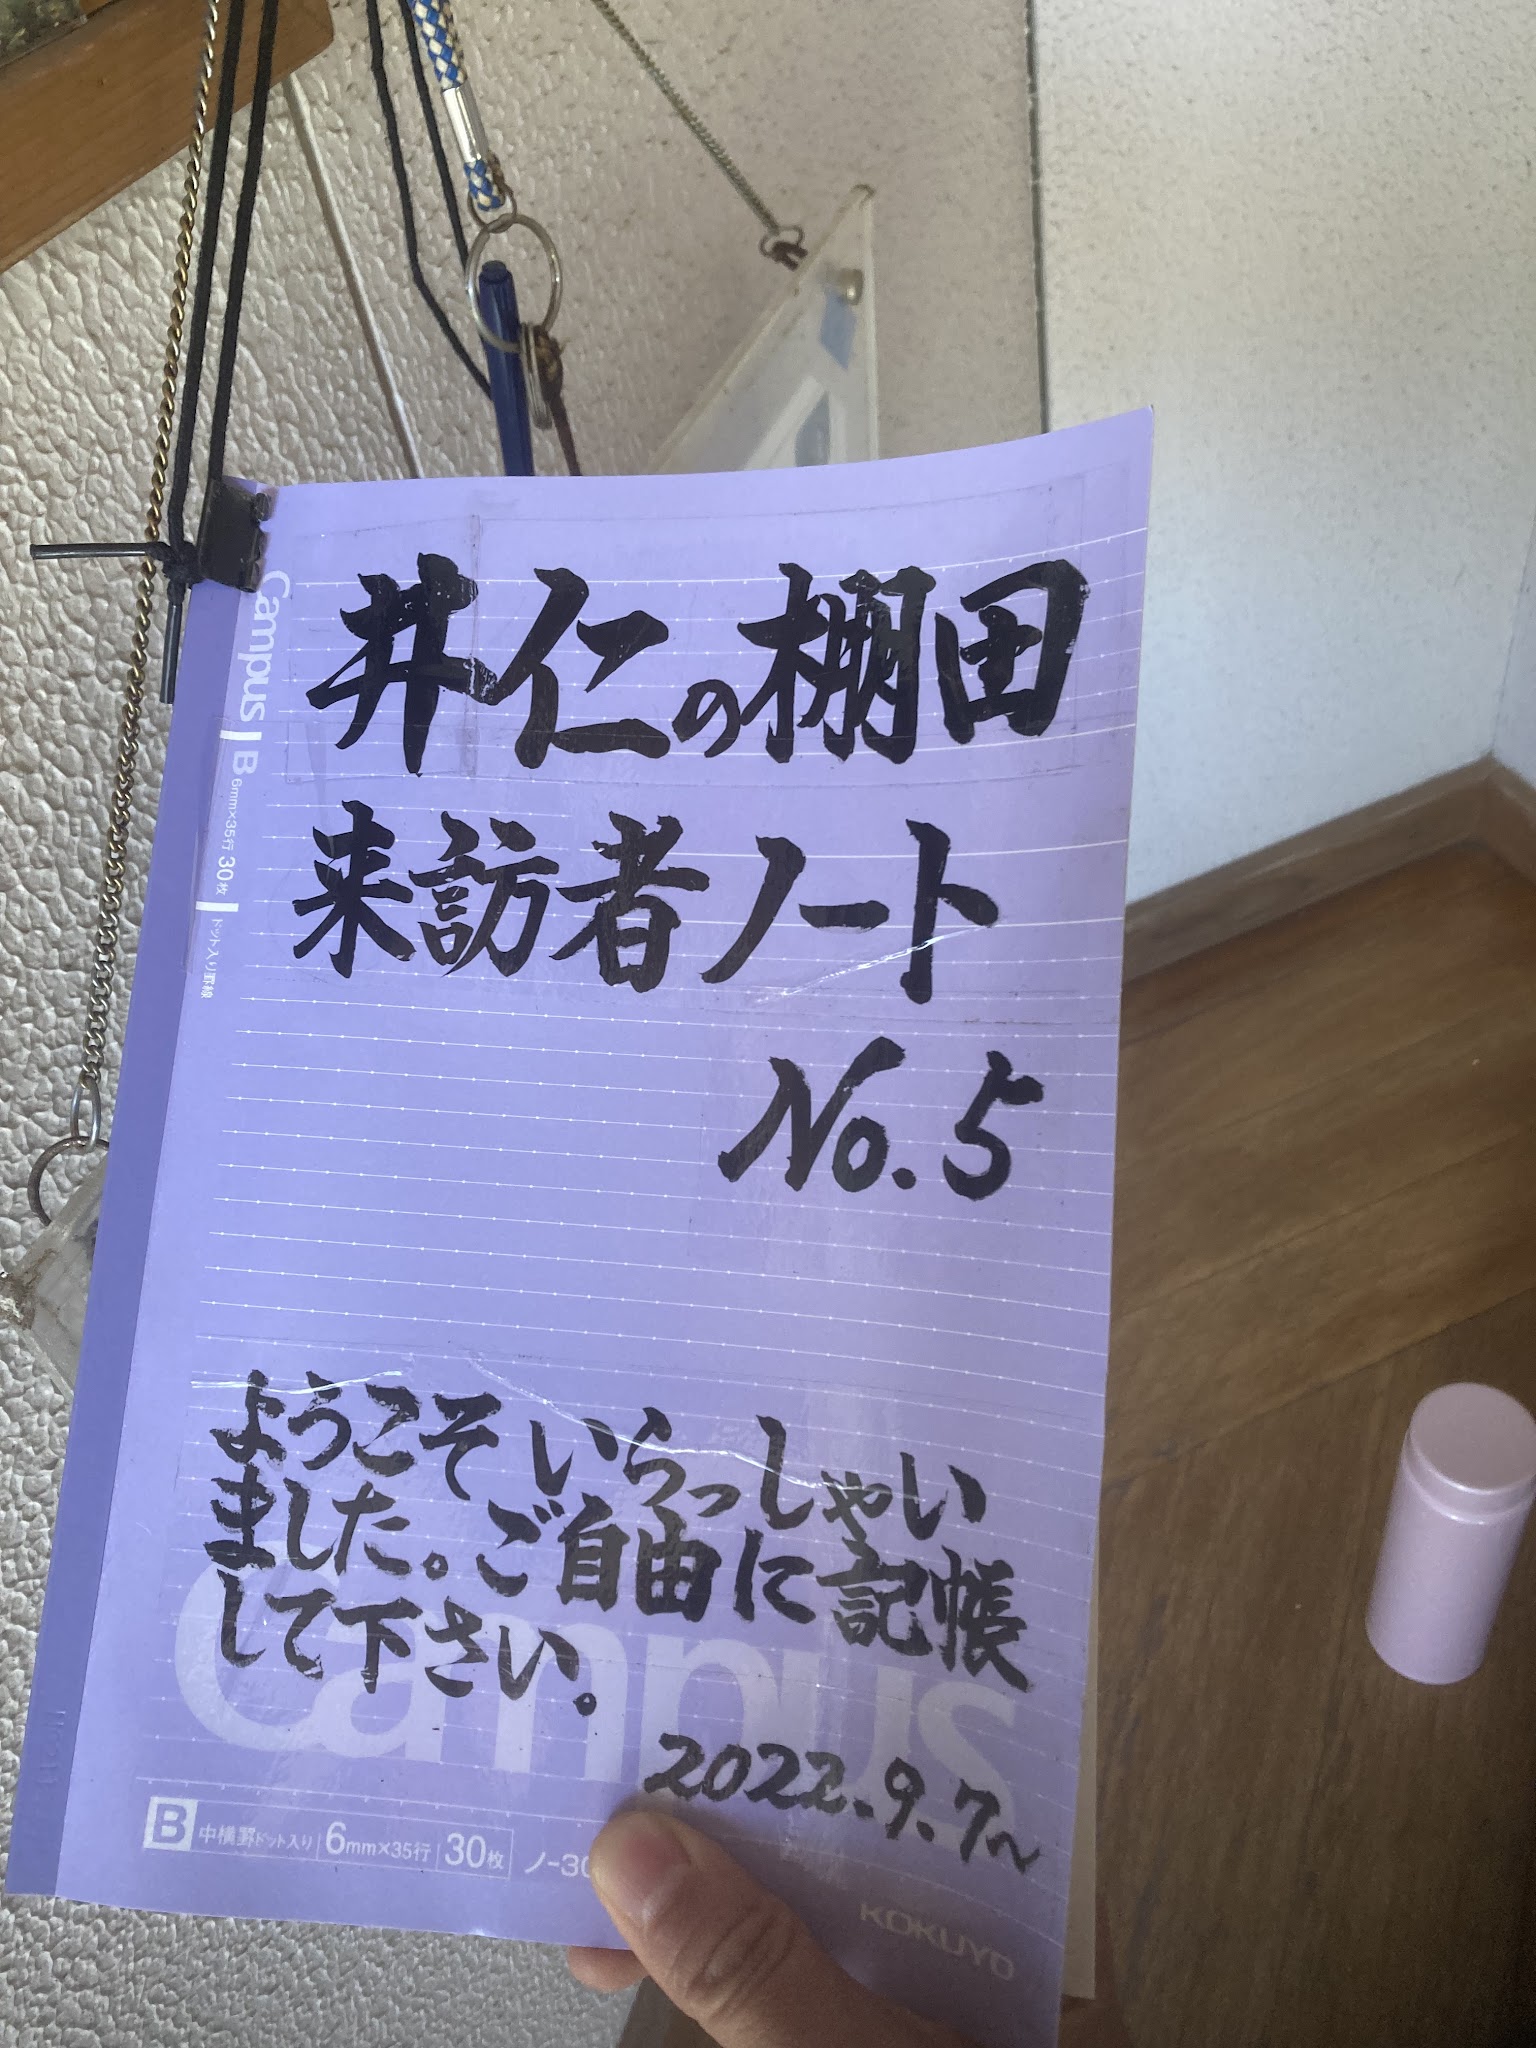 井仁の棚田
来訪者ノート
No.5
ようこそいらっしゃい
ました。ご自由に記帳
して下さい。
2022.9.7~
Campus
B 中横罫ドット入り 6mm×35行 30枚 ノ-30
KOKUYO
Campus B 6mm×35行 30枚 ドット入り罫線